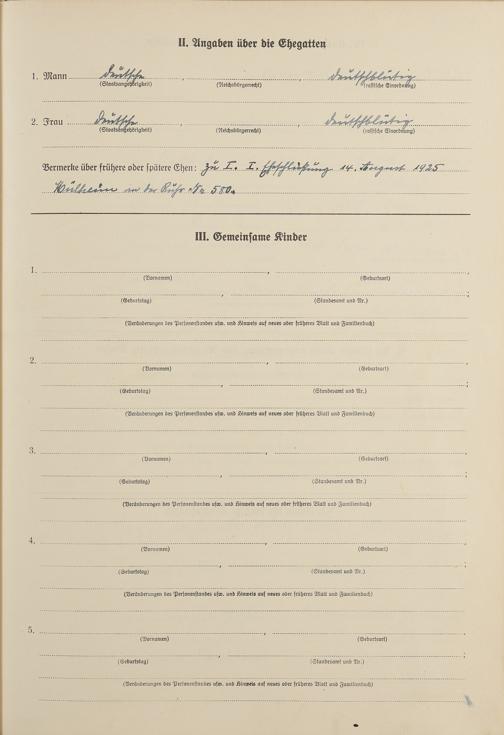 II. Angaben über die Ehegatten
1. Mann deutsche , , deutschblütig
(Staatsangehörigkeit) (Reichsbürgerrecht) (rassische Einordnung)
2. Frau deutsche , , deutschblütig
(Staatsangehörigkeit) (Reichsbürgerrecht) (rassische Einordnung)
Vermerke über frühere oder spätere Ehen: zu I. I. Eheschließung 14. August 1925
Mülheim an der Ruhr Nr. 580.
III. Gemeinsame Kinder
1. , ,
(Vornamen) (Geburtsort)
, ;
(Geburtstag) (Standesamt und Nr.)
(Veränderungen des Personenstandes usw. und Hinweis auf neues oder früheres Blatt und Familienbuch)
2. , ,
(Vornamen) (Geburtsort)
, ;
(Geburtstag) (Standesamt und Nr.)
(Veränderungen des Personenstandes usw. und Hinweis auf neues oder früheres Blatt und Familienbuch)
3. , ,
(Vornamen) (Geburtsort)
, ;
(Geburtstag) (Standesamt und Nr.)
(Veränderungen des Personenstandes usw. und Hinweis auf neues oder früheres Blatt und Familienbuch)
4. , ,
(Vornamen) (Geburtsort)
, ;
(Geburtstag) (Standesamt und Nr.)
(Veränderungen des Personenstandes usw. und Hinweis auf neues oder früheres Blatt und Familienbuch)
5. , ,
(Vornamen) (Geburtsort)
, ;
(Geburtstag) (Standesamt und Nr.)
(Veränderungen des Personenstandes usw. und Hinweis auf neues oder früheres Blatt und Familienbuch)